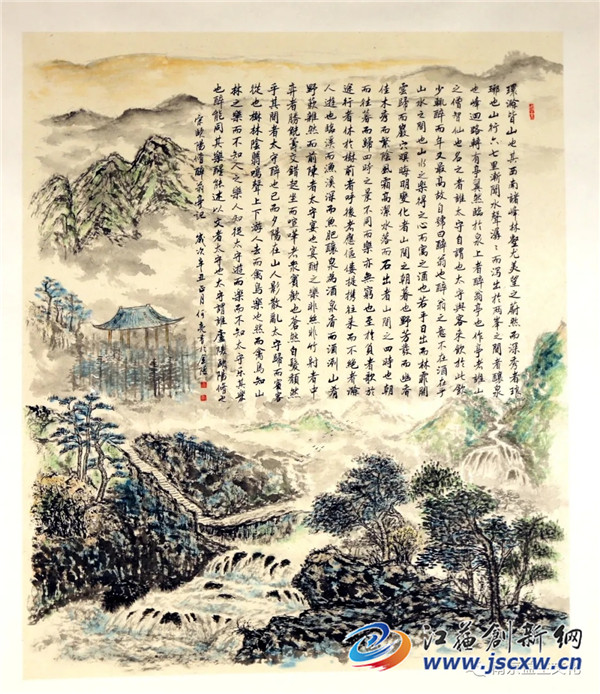 環滁皆山也其西南諸峰林壑尤美望之蔚然而深秀者琅
琊也山行六七里漸聞水聲潺々而瀉出於兩峯之間者釀泉
也峰迴路轉有亭翼然臨於泉上者醉翁亭也作亭者誰山
之僧智仙也名之者誰太守自謂也太守與客來飲於此飲
少輒醉而年又最高故自號曰醉翁也醉翁之意不在酒在乎
山水之間也山水之樂得之心而寓之酒也若乎日出而林霏開
雲歸而巖穴暝晦明變化者山間之朝暮也野芳發而幽香
佳木秀而繁陰風霜高潔水落而石出者山間之四時也朝
而往暮而歸四時之景不同而樂亦無窮也至於負者歌於
途行者休於樹前者呼後者應傴僂提携往來而不絕者滁
人遊也臨溪而漁溪深而魚肥釀泉為酒泉香而酒洌山肴
野蔌雜然而前陳者太守宴也宴酣之樂非絲非竹射者中
弈者勝觥籌交錯起坐而喧嘩者衆賓歡也蒼然白髮頹然
乎其間者太守醉也已而夕陽在山人影散亂太守歸而賓客
從也樹林陰翳鳴聲上下遊人去而禽鳥樂也然而禽鳥知山
林之樂而不知人之樂人知從太守遊而樂而不知太守樂其樂
也醉能同其樂醒能述以文者太守也太守謂誰廬陵歐陽脩也
宋歐陽脩醉翁亭記 歲次辛丑正月何亮書於金陵
江蘇創新網
www.jscxw.cn